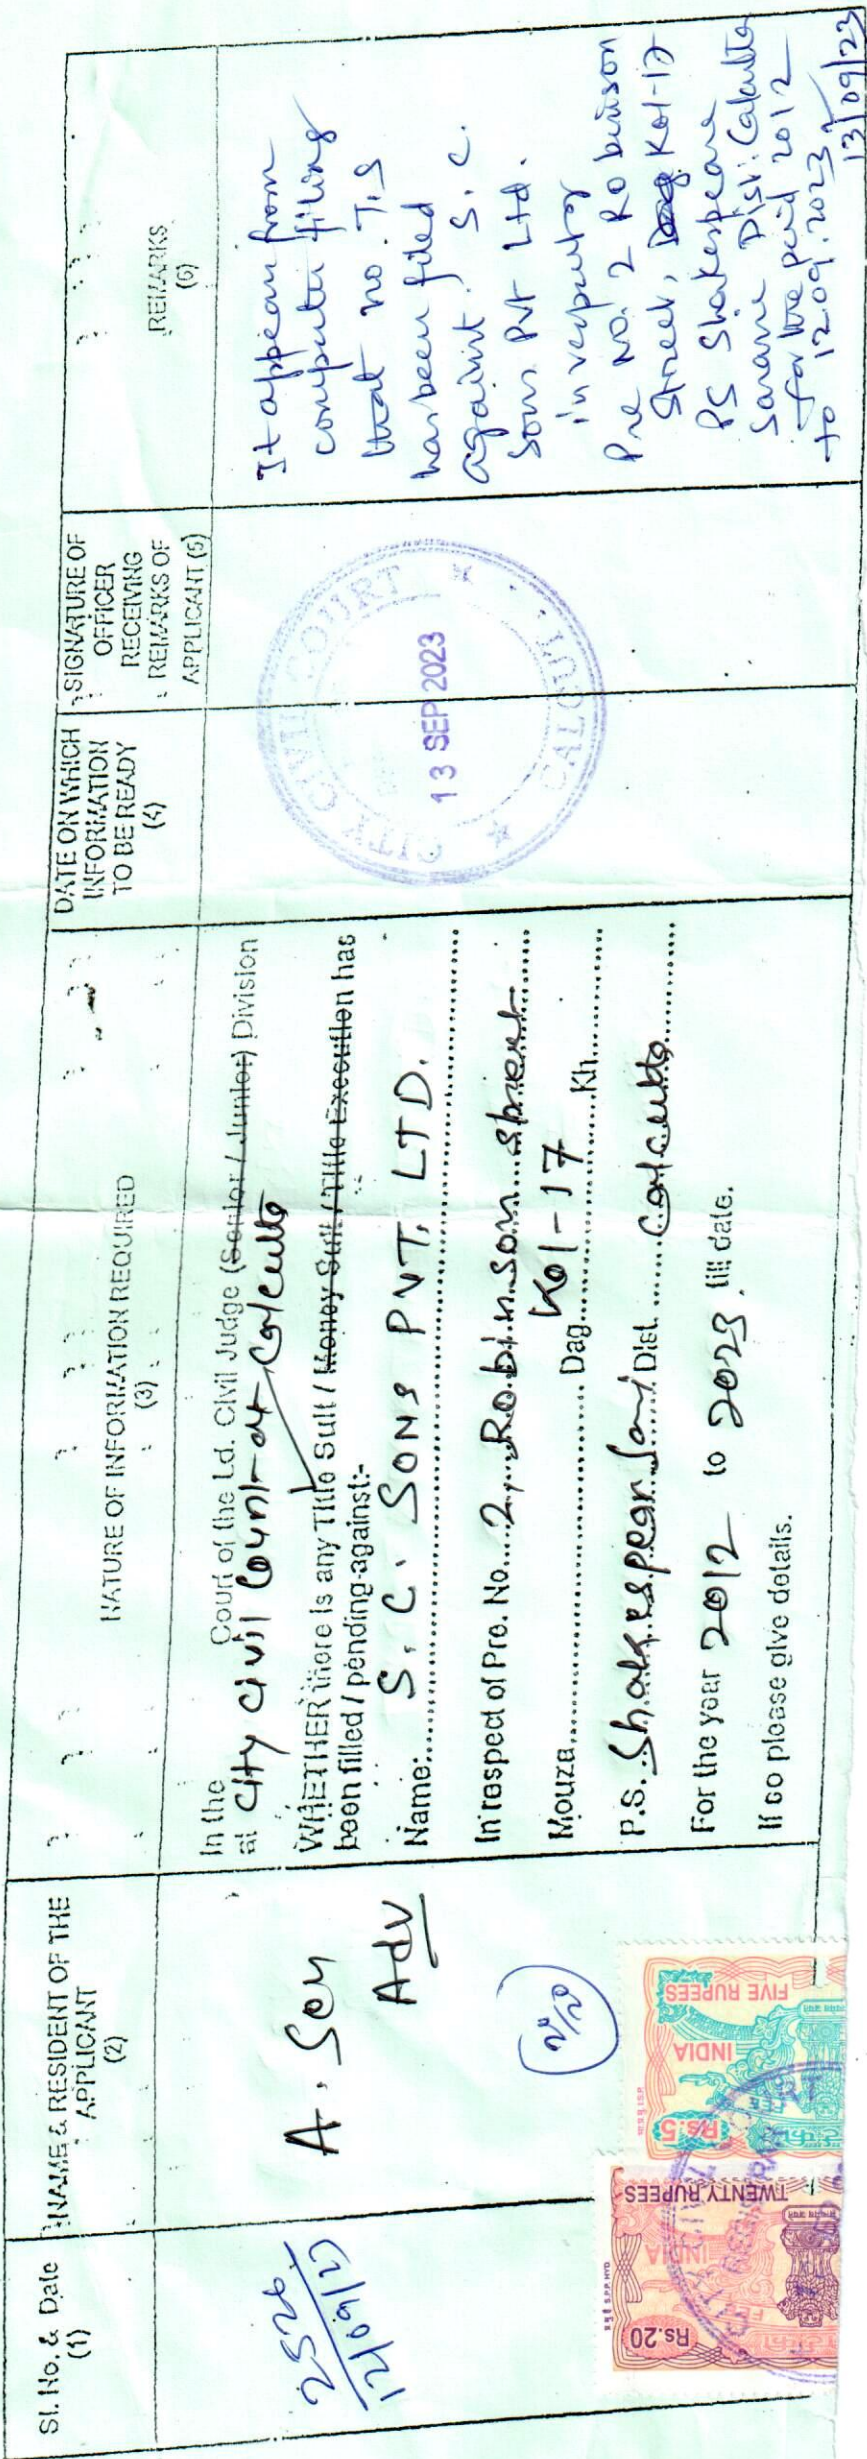 Sl. No. & Date
(1)
NAME & RESIDENT OF THE
APPLICANT
(2)
NATURE OF INFORMATION REQUIRED
(3)
DATE ON WHICH
INFORMATION
TO BE READY
(4)
SIGNATURE OF
OFFICER
RECEIVING
REMARKS OF
APPLICANT (5)
REMARKS
(6)
2526
12/09/23
A. Sen
Adv
In the Court of the Ld. Civil Judge (Senior / Junior) Division
at City Civil Court at Calcutta
WHETHER there is any Title Suit / Money Suit / Title Execution has
been filled / pending against:-
Name: S. C. SONS PVT. LTD.
In respect of Pre. No. 2, Robinson Street
Kol-17
Mouza Dag Kh.
P.S. Shakespear Sarani Dist. Calcutta
For the year 2012 to 2023. till date.
If so please give details.
CITY CIVIL COURT
13 SEP 2023
CALCUTTA
It appear from
computer filing
that no. T.S
has been filed
against S. C.
Sons Pvt Ltd.
in respect of
Pre no. 2 Robinson
Street, Kol-17
PS Shakespeare
Sarani Dist: Calcutta
for the period 2012
to 12.09.2023
13/09/23
Rs.20
INDIA
TWENTY RUPEES
Rs.5
INDIA
FIVE RUPEES